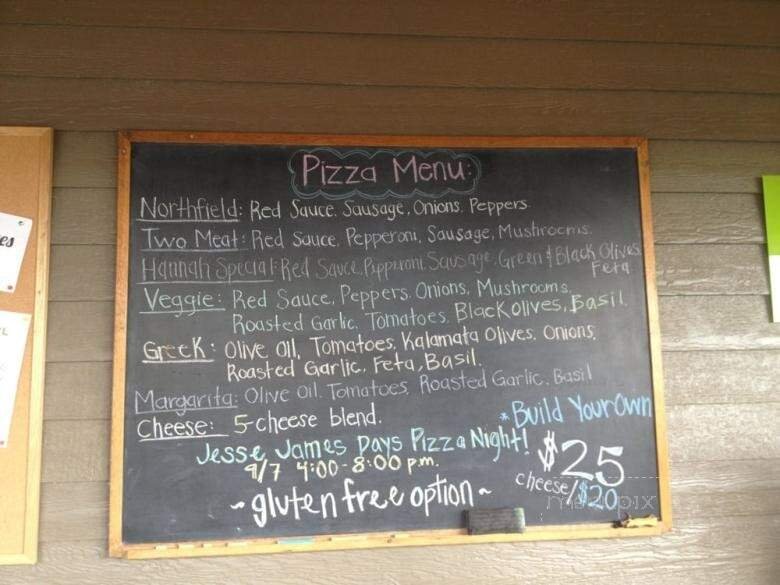 Pizza Menu:
Northfield: Red Sauce, Sausage, Onions, Peppers
Two Meat: Red Sauce, Pepperoni, Sausage, Mushrooms.
Hannah Special: Red Sauce, Pepperoni, Sausage, Green & Black Olives,
Feta
Veggie: Red Sauce, Peppers, Onions, Mushrooms,
Roasted Garlic, Tomatoes, Black olives, Basil
Greek: Olive Oil, Tomatoes, Kalamata Olives, Onions,
Roasted Garlic, Feta, Basil.
Margarita: Olive Oil, Tomatoes, Roasted Garlic, Basil
Cheese: 5-cheese blend.
*Build Your Own
Jesse James Days Pizza Night!
9/7 4:00-8:00 p.m.
$25
cheese/$20
~gluten free option~